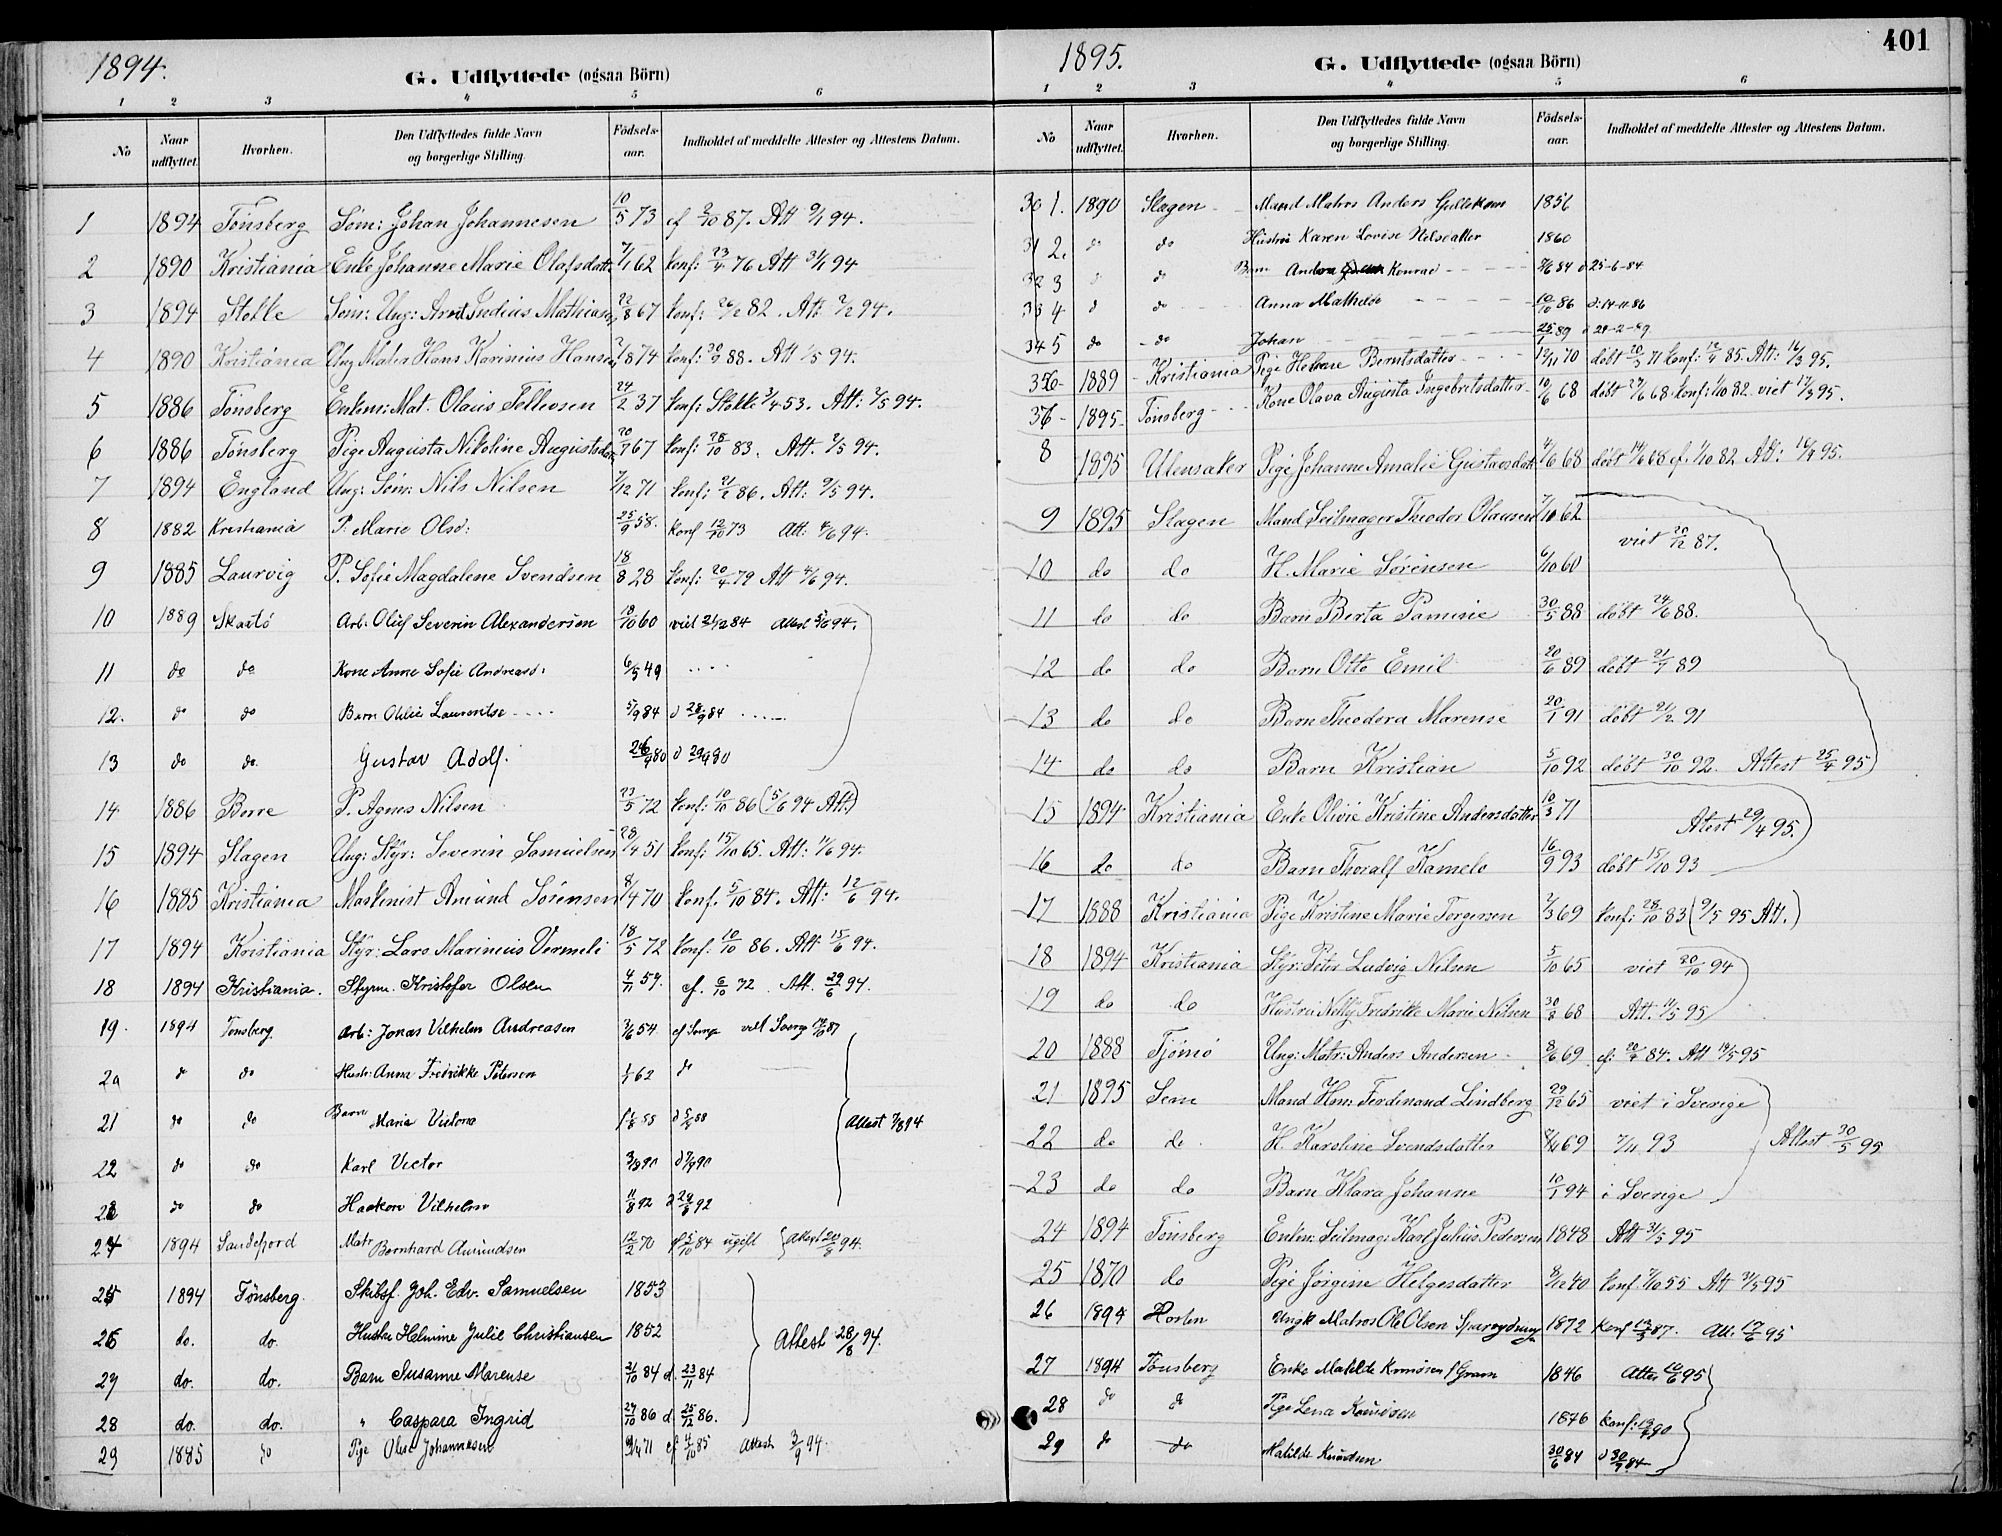 1894.
G. Udflyttede (ogsaa Börn)
1 2 3 4 5 6
No Naar udflyttet. Hvorhen. Den Udflyttedes fulde Navn og borgerlige Stilling. Födsels-aar. Indholdet af meddelte Attester og Attestens Datum.
1 1894 Tønsberg Söm: Johan Johannesen 10/5 73 cf 2/10 87. Att 9/1 94.
2 1890 Kristiania Enke Johanne Marie Olafsdatt 7/1 62 konf: 23/4 76 Att 31/1 94
3 1894 Stokke Söm: Ung: Arnt Indius Mathiasen 22/8 67 konf: 26/2 82. Att. 2/2 94.
4 1890 Kristiania Ung Matr Hans Karinius Hansen 74 konf: 30/9 88. Att 1/5 94.
5 1886 Tönsberg Enkem: Mat. Olaus Tellevsen 24/2 37 konf: Stokke 3/4 53. Att: 2/5 94.
6 1886 Tønsberg Pige Augusta Nikoline Augustsdtr 20/7 67 konf: 28/10 83. Att. 2/5 94.
7 1894 England Ung: Söm: Nils Nilsen 7/12 71 konf: 21/2 86. Att: 9/5 94.
8 1882 Kristiania P. Marie Olsd: 25/9 58. konf 12/10 73 Att: 4/6 94.
9 1885 Laurvig P. Sofie Magdalene Svendsen 18/8 28 konf: 20/4 79 Att 4/6 94.
10 1889 Skaató Arb: Oluf Severin Alexandersen 18/10 60 viet 21/12 84 Attest 5/6 94.
11 do do Kone Anne Sofie Andreasd: 6/3 49
12. do do Barn Otilie Laurentse 5/9 84 d 28/9 84
13 do do. Gustav Adolf. 80 80
14 1886 Borre P. Agnes Nilsen 23/5 72 konf: 10/10 86 (5/6 94 Att)
15 1894 Slagen Ung: Styr: Severin Samuelsen 28/4 51 konf: 15/10 65. Att: 7/6 94.
16 1885 Kristiania Maskinist Amund Sörensen 8/4 70 konf. 5/10 84. Att: 12/6 94.
17 1894 Kristiania Styr: Lars Marinius Vermeli 18/5 72 konf: 10/10 86. Att: 15/6 94.
18 1894 Kristiania. Styrm. Kristofer Olsen 4/11 57. cf. 6/10 72. Att. 29/6 94.
19. 1894 Tønsberg. Arb: Jonas Vilhelm Andreasen 3/6 54 cf Sverge viet Sverg 87
20 do do Hustr: Anna Fredrikke Petersen 1/7 62 do
21 do do Barn Maria Victoria 88 88 Attest 7/8 94
22 do do Karl Victor 90 90
23 do do Haakon Vilhelm 11/8 92 92
24 1894 Sandefjord Matr Bernhard Amundsen 12/2 70 cf 5/10 84 ugift Attest 20/8 94.
25 1894 Tønsberg. Skibsf. Joh. Edv. Samuelsen 1853
26 do. do. Hustru Helmine Julie Christiansen 1852 Attest 28/8 94.
27 do. do. Barn Susanne Marense 21/10 84 d. 23/11 84
28 do. do. " Caspara Ingrid 29/10 86 d 25/12 86.
29 1885 do Pige Olise Johannesen 71 cf 4/10 85 Attest 3/9 94.
1895.
G. Udflyttede (ogsaa Börn)
401
1 2 3 4 5 6
No Naar udflyttet. Hvorhen. Den Udflyttedes fulde Navn og borgerlige Stilling. Födsels-aar. Indholdet af meddelte Attester og Attestens Datum.
30 1. 1890 Slagen Mand Matros Anders Gulliksen 1856
31 2. do do Hustru Karen Lovise Nilsdatter 1860
32 3 do do Barn Anders Konrad 84 d 25-6-84
33 4 do do Anna Mathilde 10/10 86 d: 14-11 86
34 5 do do Johan 25/1 89 d 24-2-89
35 6 1889 Kristiania Pige Helene Berntsdatter 19/11 70 döbt 20/3 71 konf: 12/4 85. Att: 16/3 95.
36 1895. Tønsberg Kone Olava Augusta Ingebritsdatter 10/6 68 döbt 68. konf: 1/10 82 viet 95.
8 1895 Ulensaker Pige Johanne Amalie Gustavsdatt 4/6 68 döbt 14/6 68 cf. 1/10 82 Att: 16/4 95.
9 1895 Slagen Mand Seilmager Theodor Olausen 7/10 62 viet 20/12 87.
10 do do H. Marie Sörensen 6/10 60
11 do do Barn Berta Pamine 30/5 88 döbt 24/6 88.
12 do do Barn Otto Emil 20/6 89 döbt 21/7 89
13 do do Barn Theodora Marense 20/1 91 döbt 91
14 do do Barn Kristian 5/10 92 döbt 30/10 92. Attest 25/4 95
15 1894 Kristiania Enke Olivie Kristine Andersdatter 10/3 71 Atest 29/4 95.
16 do do Barn Thoralf Kamelo 16/9 93 döbt 15/10 93
17 1888 Kristiania Pige Kristine Marie Torgersen 2/3 69 konf: 28/10 83 (9/5 95 Att.)
18 1894 Kristiania Styr: Peter Ludvig Nilsen 5/10 65 viet 20/10 94
19 do do Hustru Nelly Fredrikke Marie Nilsen 30/8 68 Att. 11/5 95
20 1888 Tjömö Ung: Matr: Anders Andersen 8/6 69. cf: 20/4 84. Att 14/5 95
21 1895 Sem Mand Hem: Ferdinand Lindberg 29/12 65 viet i Sverige
22 do do. H. Karoline Svendsdatter 8/4 69 7/11 93 Attest 30/5 95
23 do do Barn Klara Johanne 10/1 94 i Sverige
24 1894 Tønsberg Enkm: Seilmag: Karl Julius Pedersen 1848 Att 31/5 95
25 1870 do Pige Jörgine Helgesdatter 8/12 40 konf 7/10 55 Att 31/5 95
26 1894 Horten Ungk Matros Ole Olsen 1872 konf 87. Att. 17/6 95
27 1894 Tønsberg Enke Matilde Knudsen f Gram 1846 Attes 95
28 do do Pige Lena Knudsen 1876 konf: 90
29 do do Matilde Knudsen 30/6 84 d 30/9 84